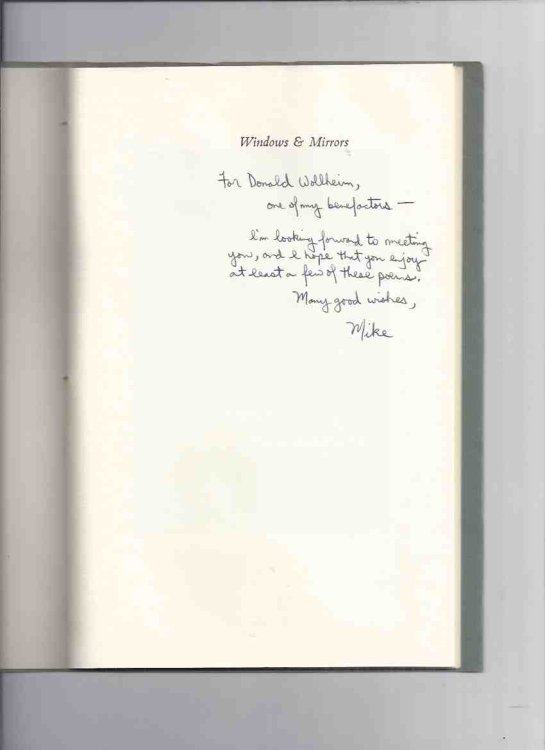 Windows & Mirrors
For Donald Wollheim,
one of my benefactors —
I'm looking forward to meeting
you, and I hope that you enjoy
at least a few of these poems.
Many good wishes,
Mike